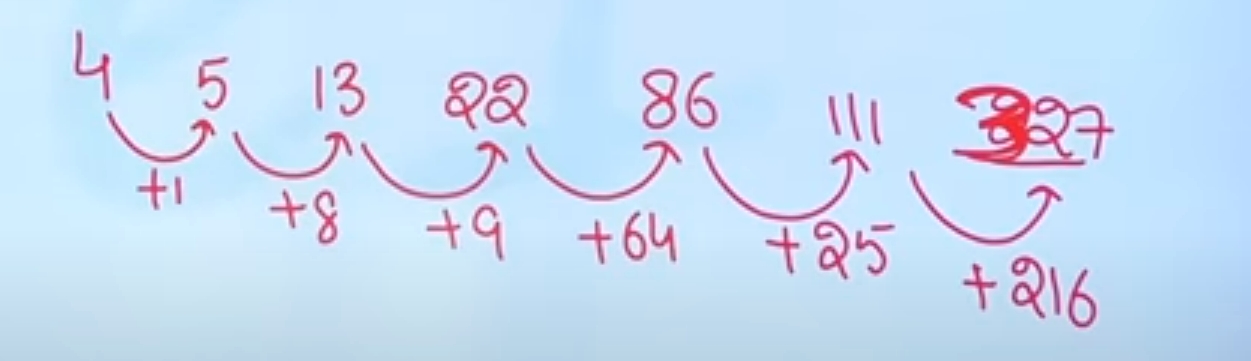 4 5 13 22 86 111 327
+1 +8 +9 +64 +25 +216